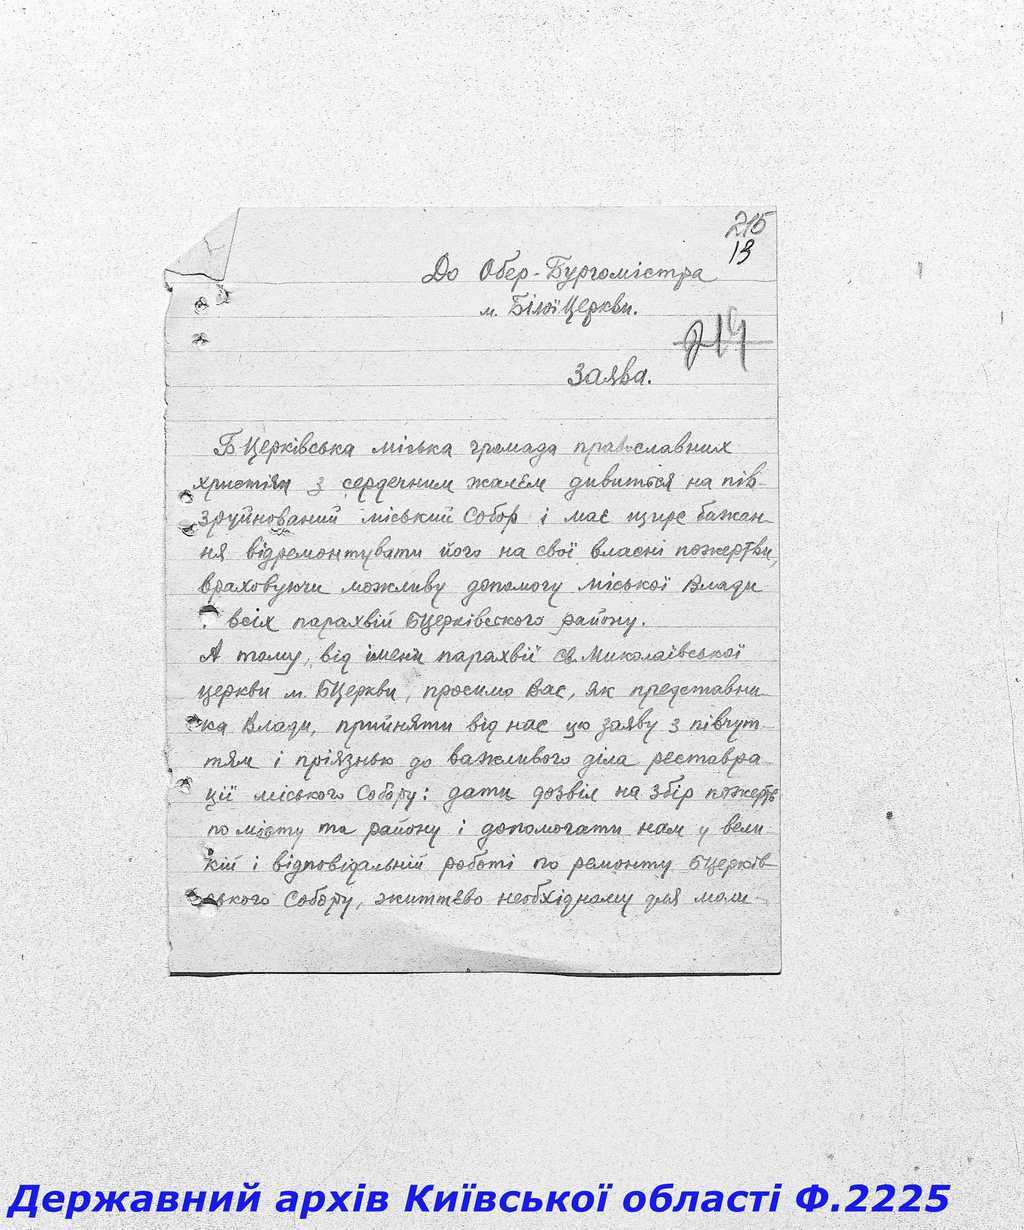 215
13
До Обер-Бургомістра
м. Білої Церкви.
214
Заява.
Б Церківська міська громада православних
християн з сердечним жалєм дивиться на пів-
зруйнований міський Собор і має щире бажан-
ня відремонтувати його на свої власні пожертви,
враховуючи можливу допомогу міської Влади
і всіх парахвій БЦерківського району.
А тому, від імени парахвії Св. Миколаївської
церкви м. БЦеркви, просимо Вас, як представни-
ка Влади, прийняти від нас цю заяву з півчут-
тям і пріязнью до важливого діла реставра-
ції міського Собору: дати дозвіл на збір пожертв
по місту та району і допомогати нам у вели-
кій і відповідальній роботі по ремонту БЦерків-
ського Собору, життєво необхідному для моли-
Державний архів Київської області Ф.2225